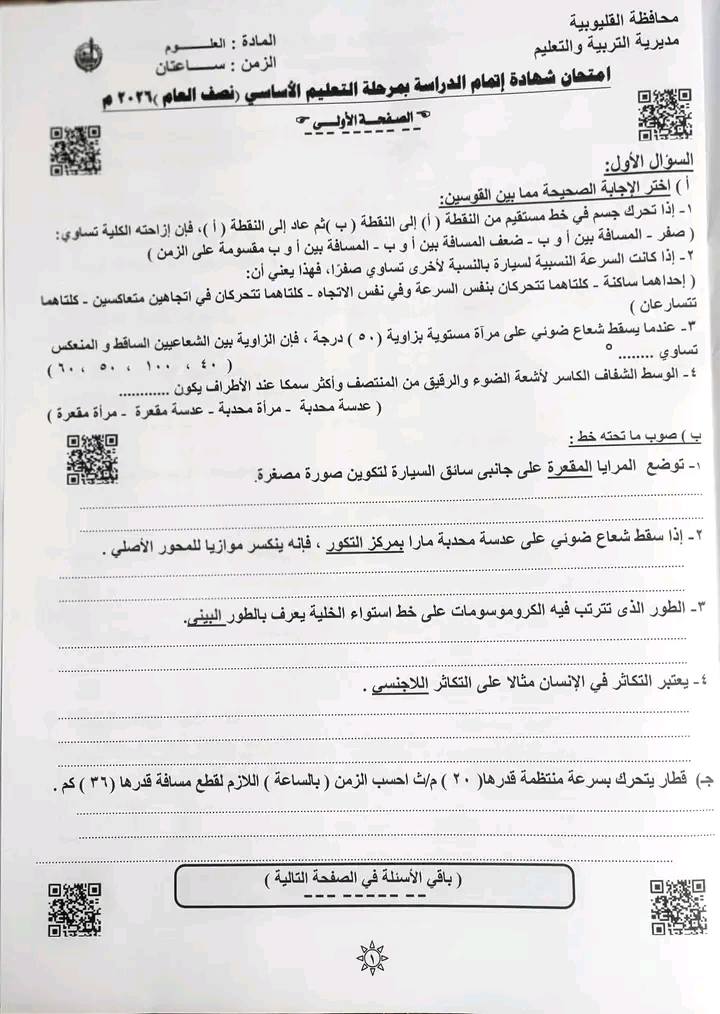 محافظة القليوبية
مديرية التربية والتعليم
المادة : العلـــوم
الزمن : ســـاعتان
امتحان شهادة إتمام الدراسة بمرحلة التعليم الأساسي (نصف العام )٢٠٢٦ م
الصفحـة الأولـى
السؤال الأول:
أ ) اختر الإجابة الصحيحة مما بين القوسين:
١- إذا تحرك جسم في خط مستقيم من النقطة ( أ) إلى النقطة ( ب )ثم عاد إلى النقطة ( أ )، فإن إزاحته الكلية تساوي:
( صفر - المسافة بين أ و ب - ضعف المسافة بين أ و ب - المسافة بين أ و ب مقسومة على الزمن )
٢- إذا كانت السرعة النسبية لسيارة بالنسبة لأخرى تساوي صفرًا، فهذا يعني أن:
( إحداهما ساكنة - كلتاهما تتحركان بنفس السرعة وفي نفس الاتجاه - كلتاهما تتحركان في اتجاهين متعاكسين - كلتاهما
تتسارعان )
٣- عندما يسقط شعاع ضوئي على مرآة مستوية بزاوية ( ٥٠ ) درجة ، فإن الزاوية بين الشعاعيين الساقط و المنعكس
تساوي ........ °
( ٤٠ ، ١٠٠ ، ٥٠ ، ٦٠ )
٤- الوسط الشفاف الكاسر لأشعة الضوء والرقيق من المنتصف وأكثر سمكا عند الأطراف يكون ............
( عدسة محدبة - مرأة محدبة - عدسة مقعرة - مرأة مقعرة )
ب ) صوب ما تحته خط :
١- توضع المرايا المقعرة على جانبى سائق السيارة لتكوين صورة مصغرة.
٢- إذا سقط شعاع ضوئي على عدسة محدبة مارا بمركز التكور ، فإنه ينكسر موازيا للمحور الأصلي .
٣- الطور الذى تترتب فيه الكروموسومات على خط استواء الخلية يعرف بالطور البينى.
٤- يعتبر التكاثر في الإنسان مثالا على التكاثر اللاجنسي .
جـ) قطار يتحرك بسرعة منتظمة قدرها( ٢٠ ) م/ث احسب الزمن ( بالساعة ) اللازم لقطع مسافة قدرها ( ٣٦ ) كم .
( باقي الأسئلة في الصفحة التالية )
١